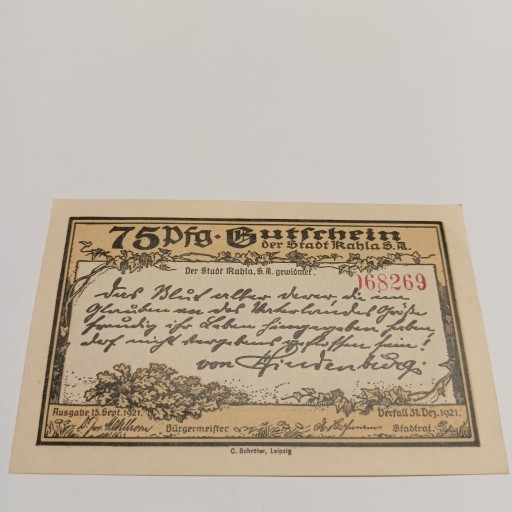 75 Pfg. Gutschein
der Stadt Kahla S.A.
Der Stadt Kahla, S.A. gewidmet.
068269
Das Blut aller derer, die im
Glauben an des Vaterlandes Größe
freudig ihr Leben hingegeben haben,
darf nicht vergebens geflossen sein!
von Hindenburg.
Ausgabe 15. Sept. 1921.
Verfall 31. Dez. 1921.
Bürgermeister
Stadtrat.
C. Schröter, Leipzig